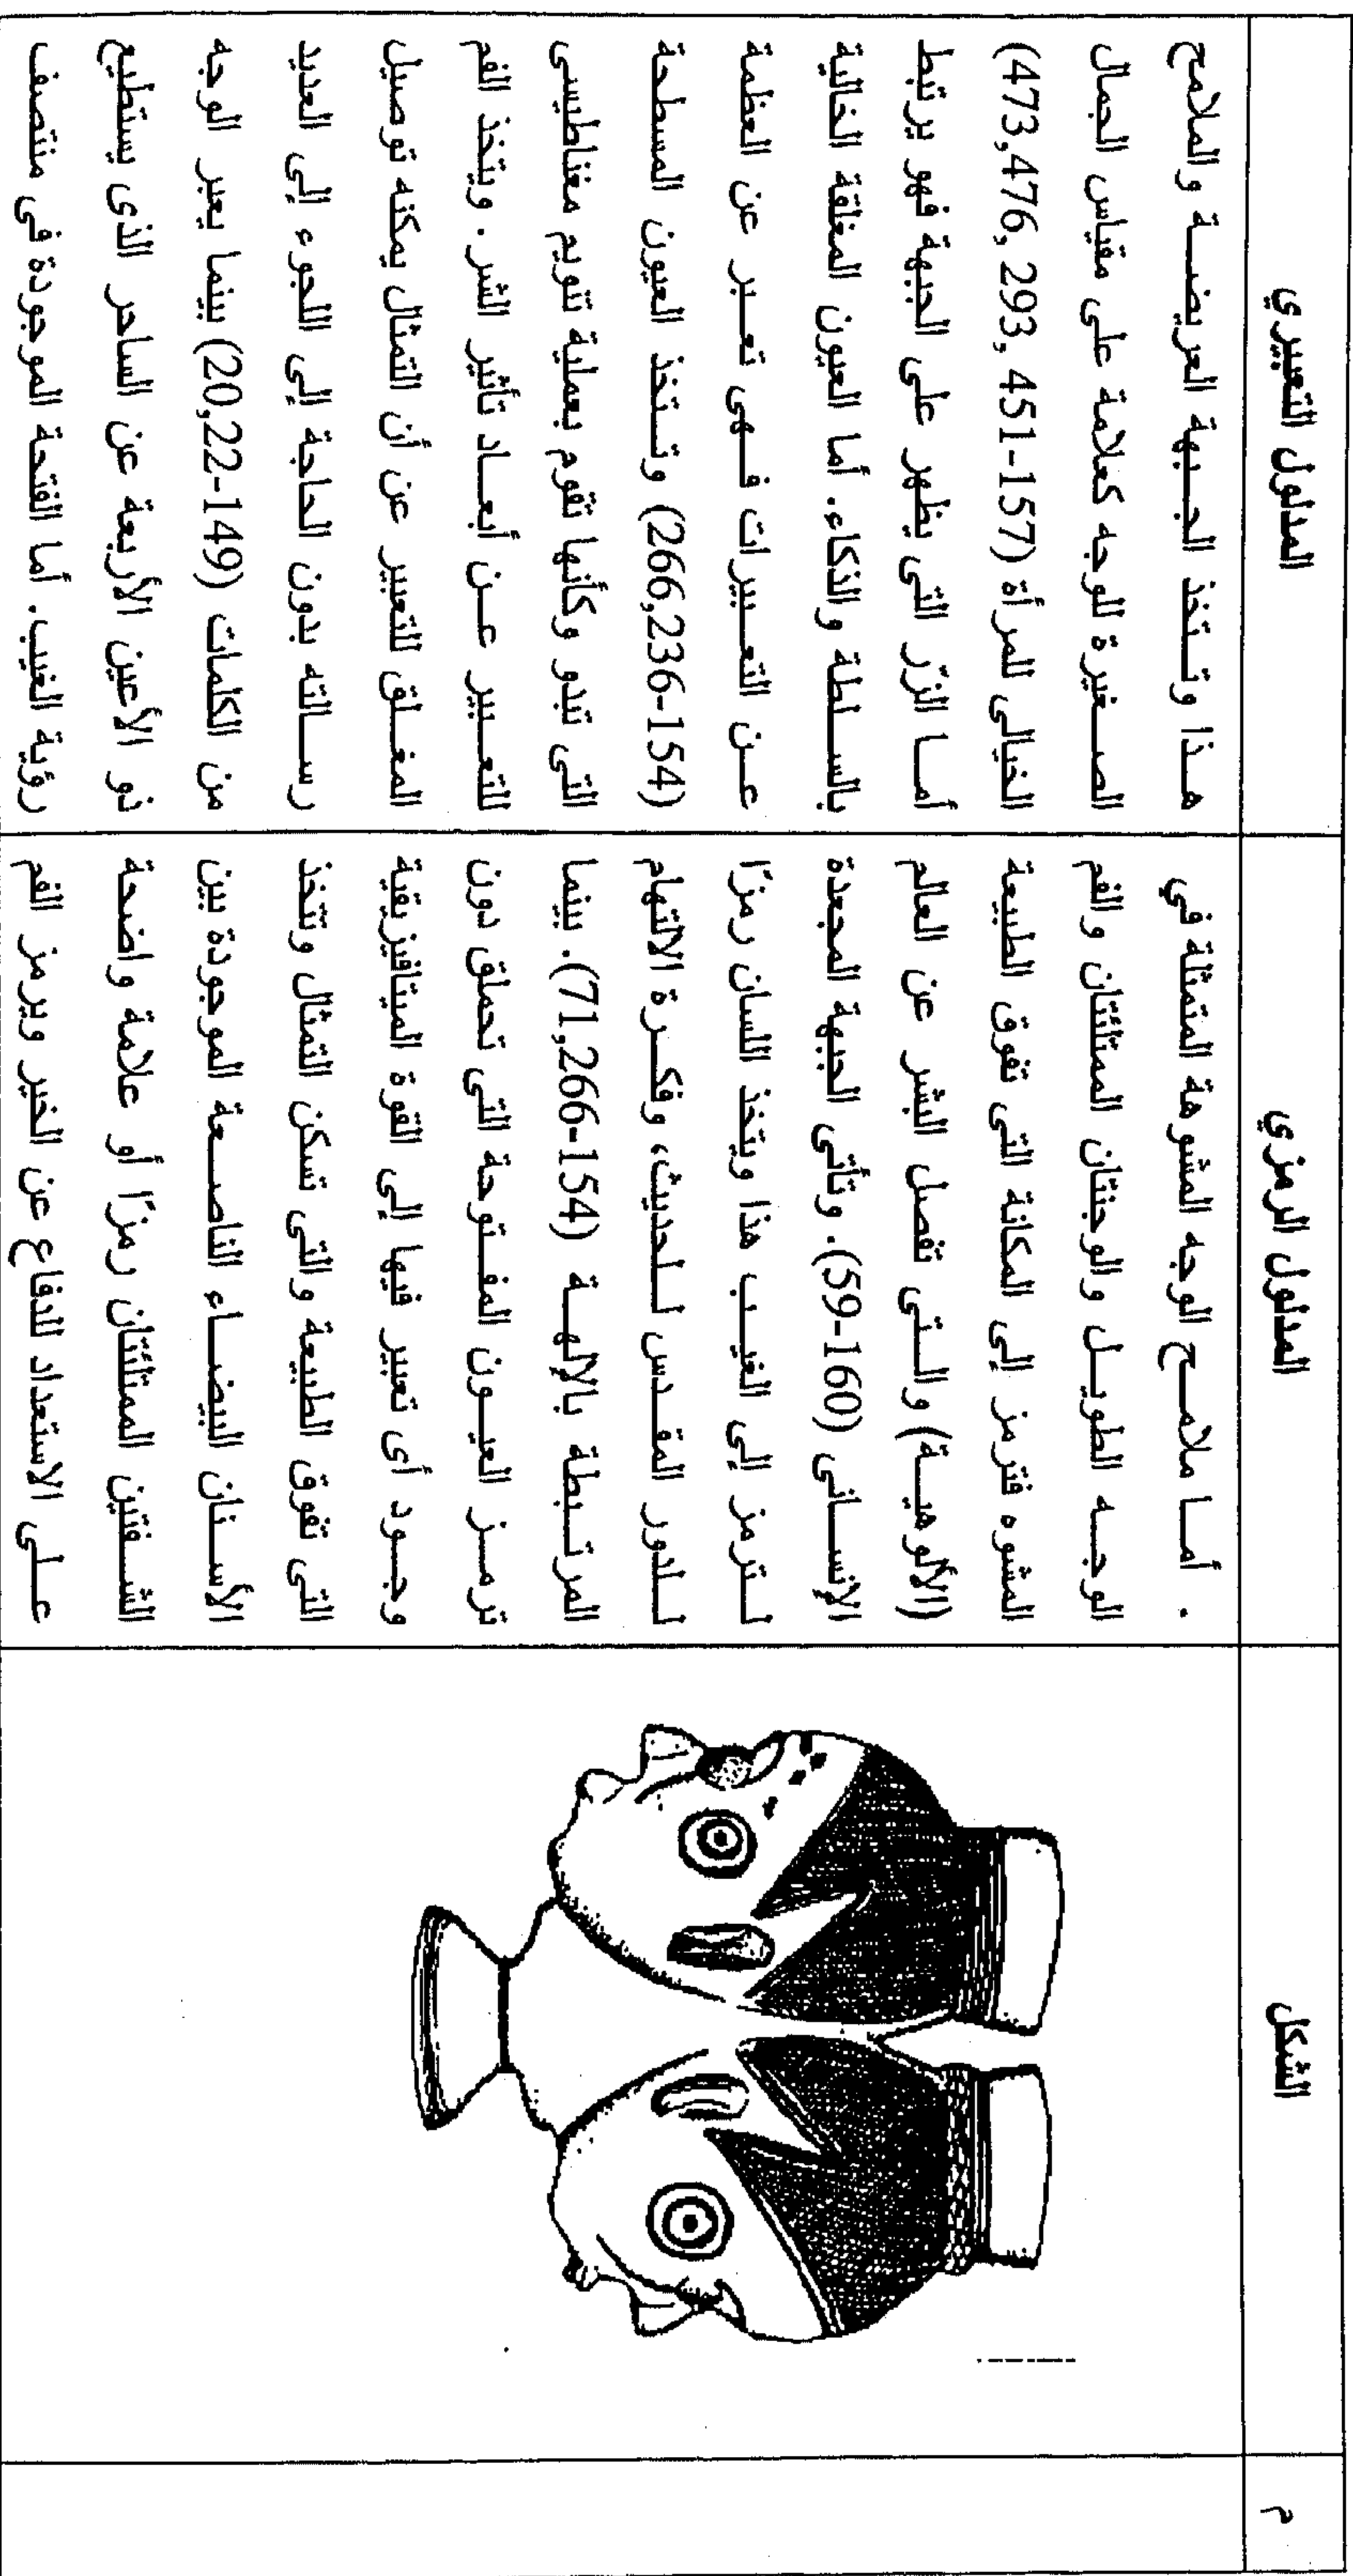 م
الشكل
المدلول الرمزي
المدلول التعبيري
. أما ملامح الوجه المشوهة المتمثلة في
الوجه الطويل والوجنتان الممتلئتان والفم
المشوه فترمز إلى المكانة التى تفوق الطبيعة
(الألوهية) والتى تفصل البشر عن العالم
الإنسانى (160-59). وتأتى الجبهة المجعدة
لترمز إلى الغيب هذا ويتخذ اللسان رمزًا
للدور المقدس للحديث، وفكرة الالتهام
المرتبطة بالإلهة (154-71,266). بينما
ترمز العيون المفتوحة التى تحملق دون
وجود أى تعبير فيها إلى القوة الميتافيزيقية
التى تفوق الطبيعة والتى تسكن التمثال وتتخذ
الأسنان البيضاء الناصعة الموجودة بين
الشفتين الممتلئتان رمزًا أو علامة واضحة
على الاستعداد للدفاع عن الخير ويرمز الفم
هذا وتتخذ الجبهة العريضة والملامح
الصغيرة للوجه كعلامة على مقياس الجمال
الخيالى للمرأة (157-451 ,293 ,473,476)
أما الزرّ التى يظهر على الجبهة فهو يرتبط
بالسلطة والذكاء. أما العيون المغلقة الخالية
عن التعبيرات فهى تعبر عن العظمة
(154-266,236) وتتخذ العيون المسطحة
التى تبدو وكأنها تقوم بعملية تنويم مغناطيسى
للتعبير عن أبعاد تأثير الشر. ويتخذ الفم
المغلق للتعبير عن أن التمثال يمكنه توصيل
رسالته بدون الحاجة إلى اللجوء إلى العديد
من الكلمات (149-20,22) بينما يعبر الوجه
ذو الأعين الأربعة عن الساحر الذى يستطيع
رؤية الغيب. أما الفتحة الموجودة فى منتصف